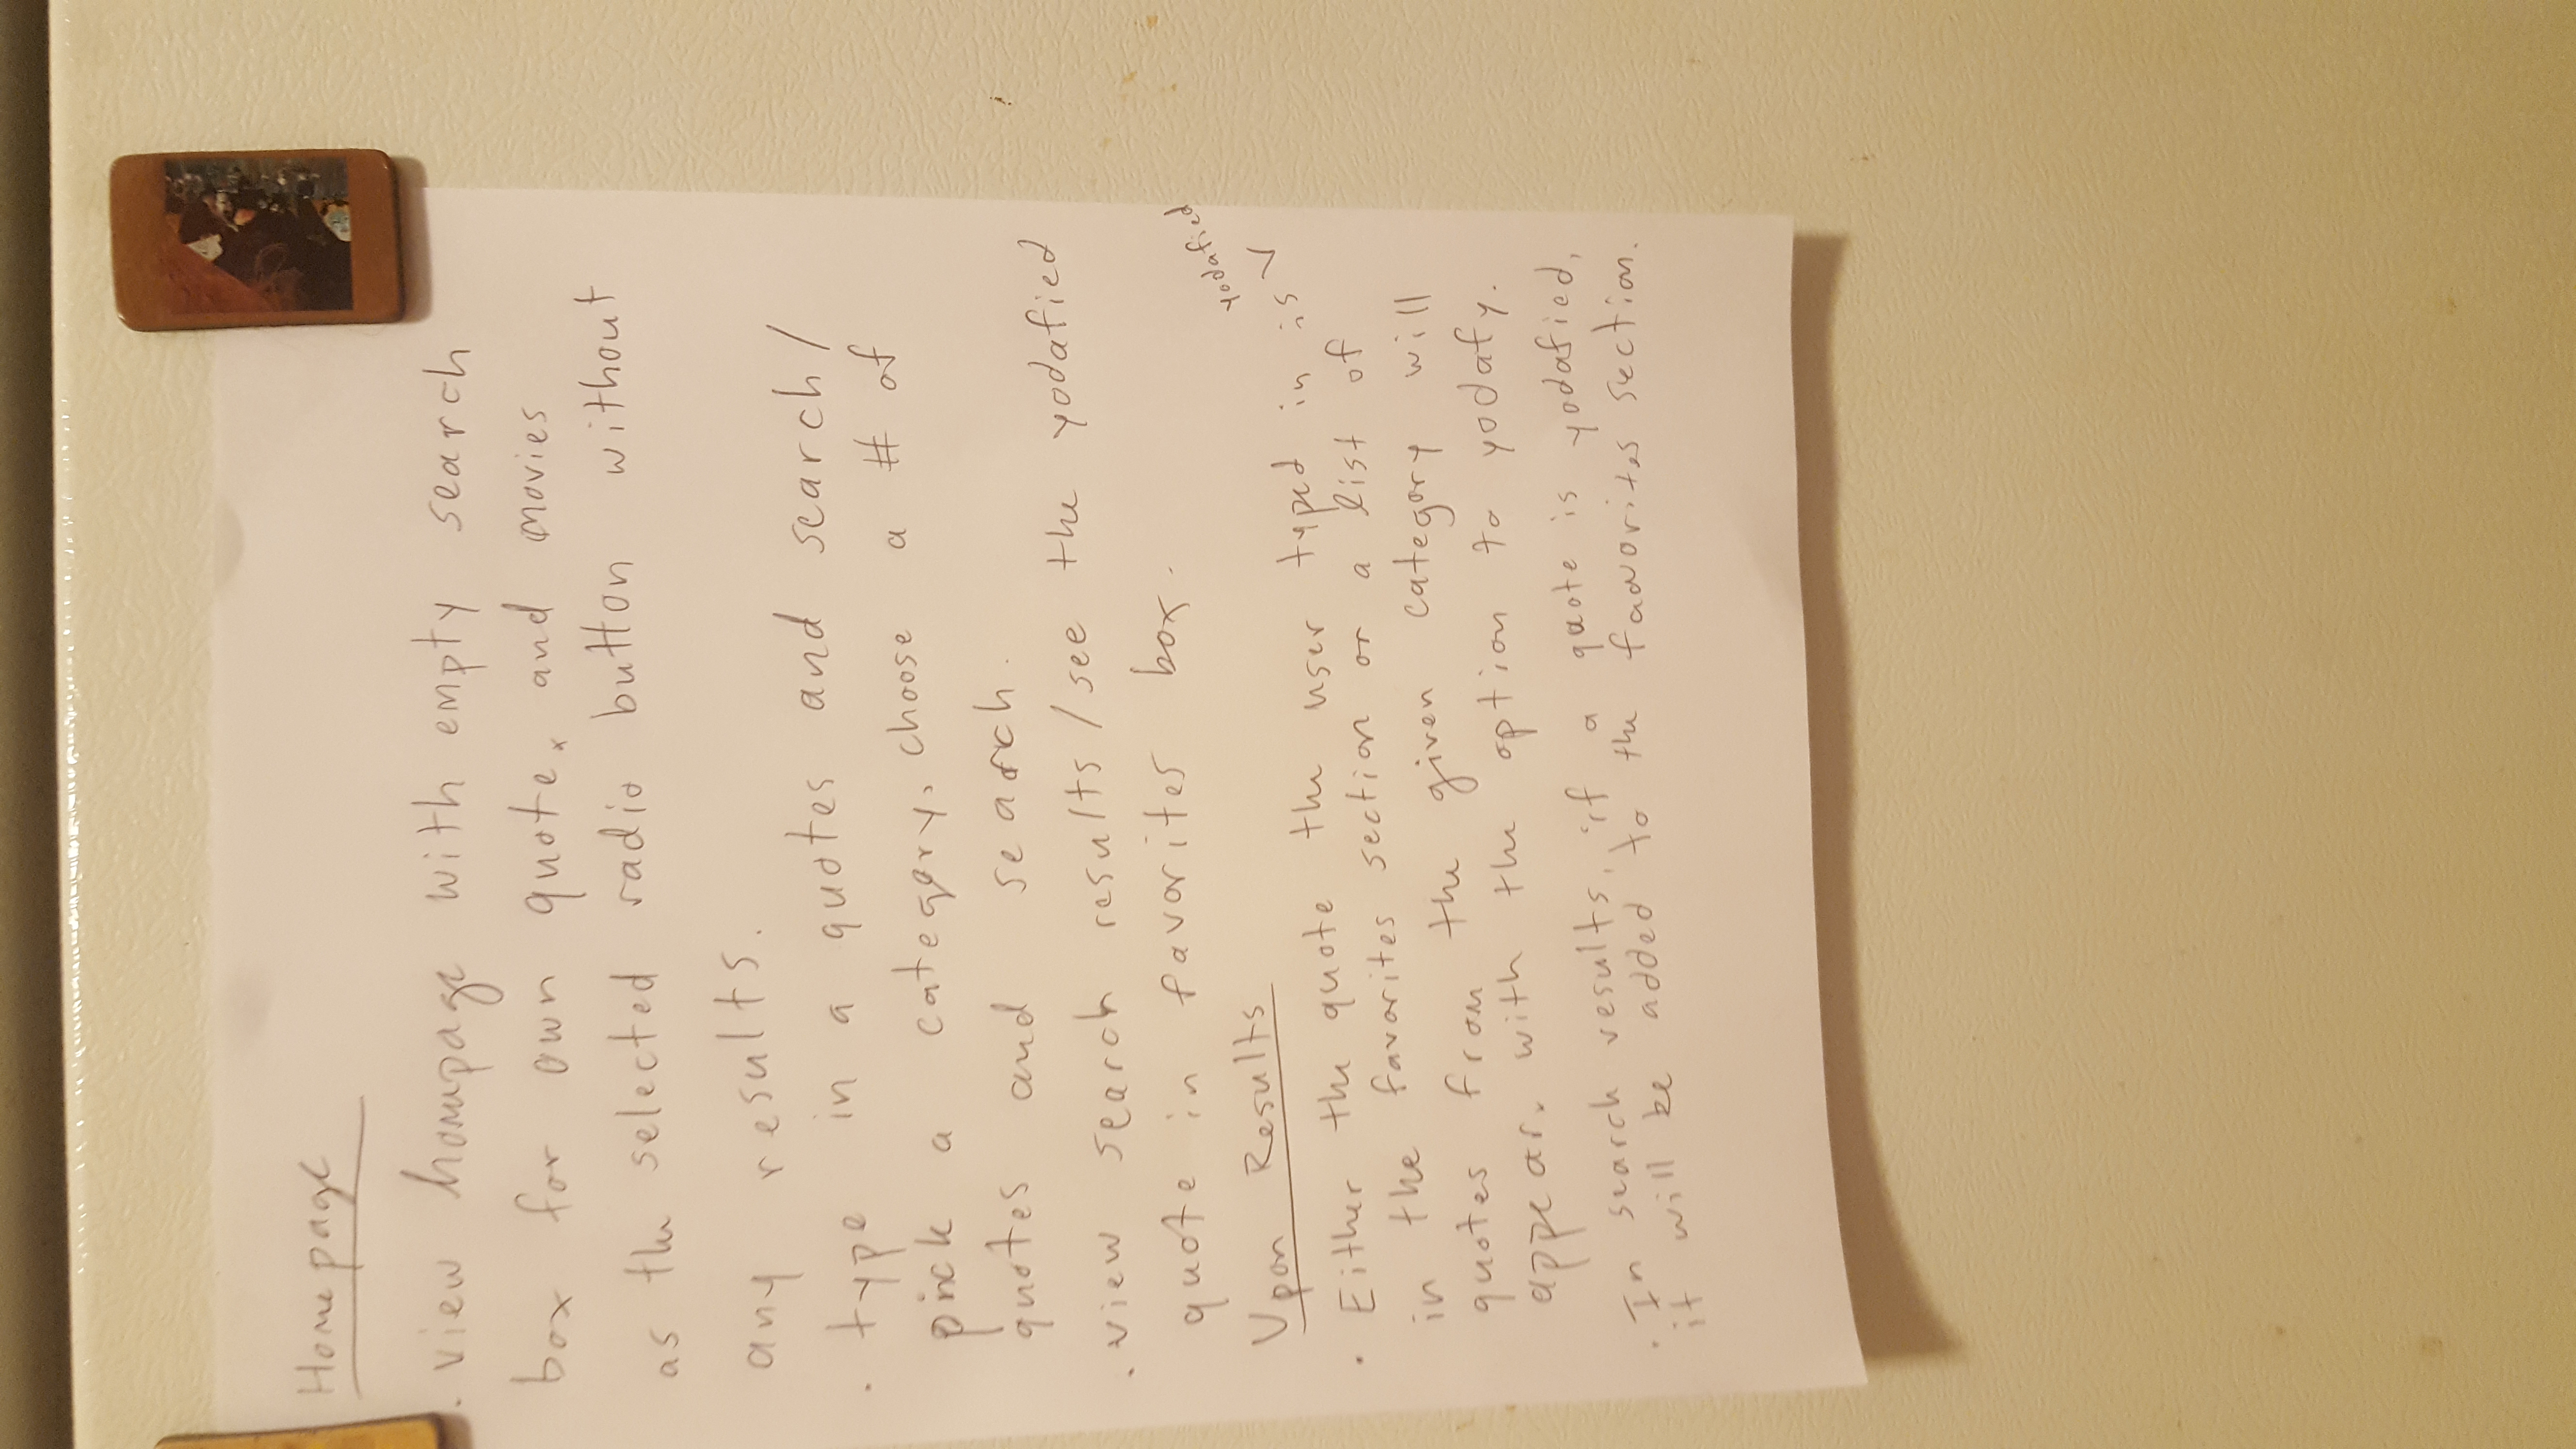 Homepage
. view homepage with empty search
box for own quote, and movies
as the selected radio button without
any results.
. type in a quotes and search/
pick a category, choose a # of
quotes and search.
. view search results/see the yodafied
quote in favorites box.
Upon Results
yodafied
. Either the quote the user typed in is V
in the favorites section or a list of
quotes from the given category will
appear. with the option to yodafy.
. In search results, if a quote is yodafied,
it will be added to the favorites section.